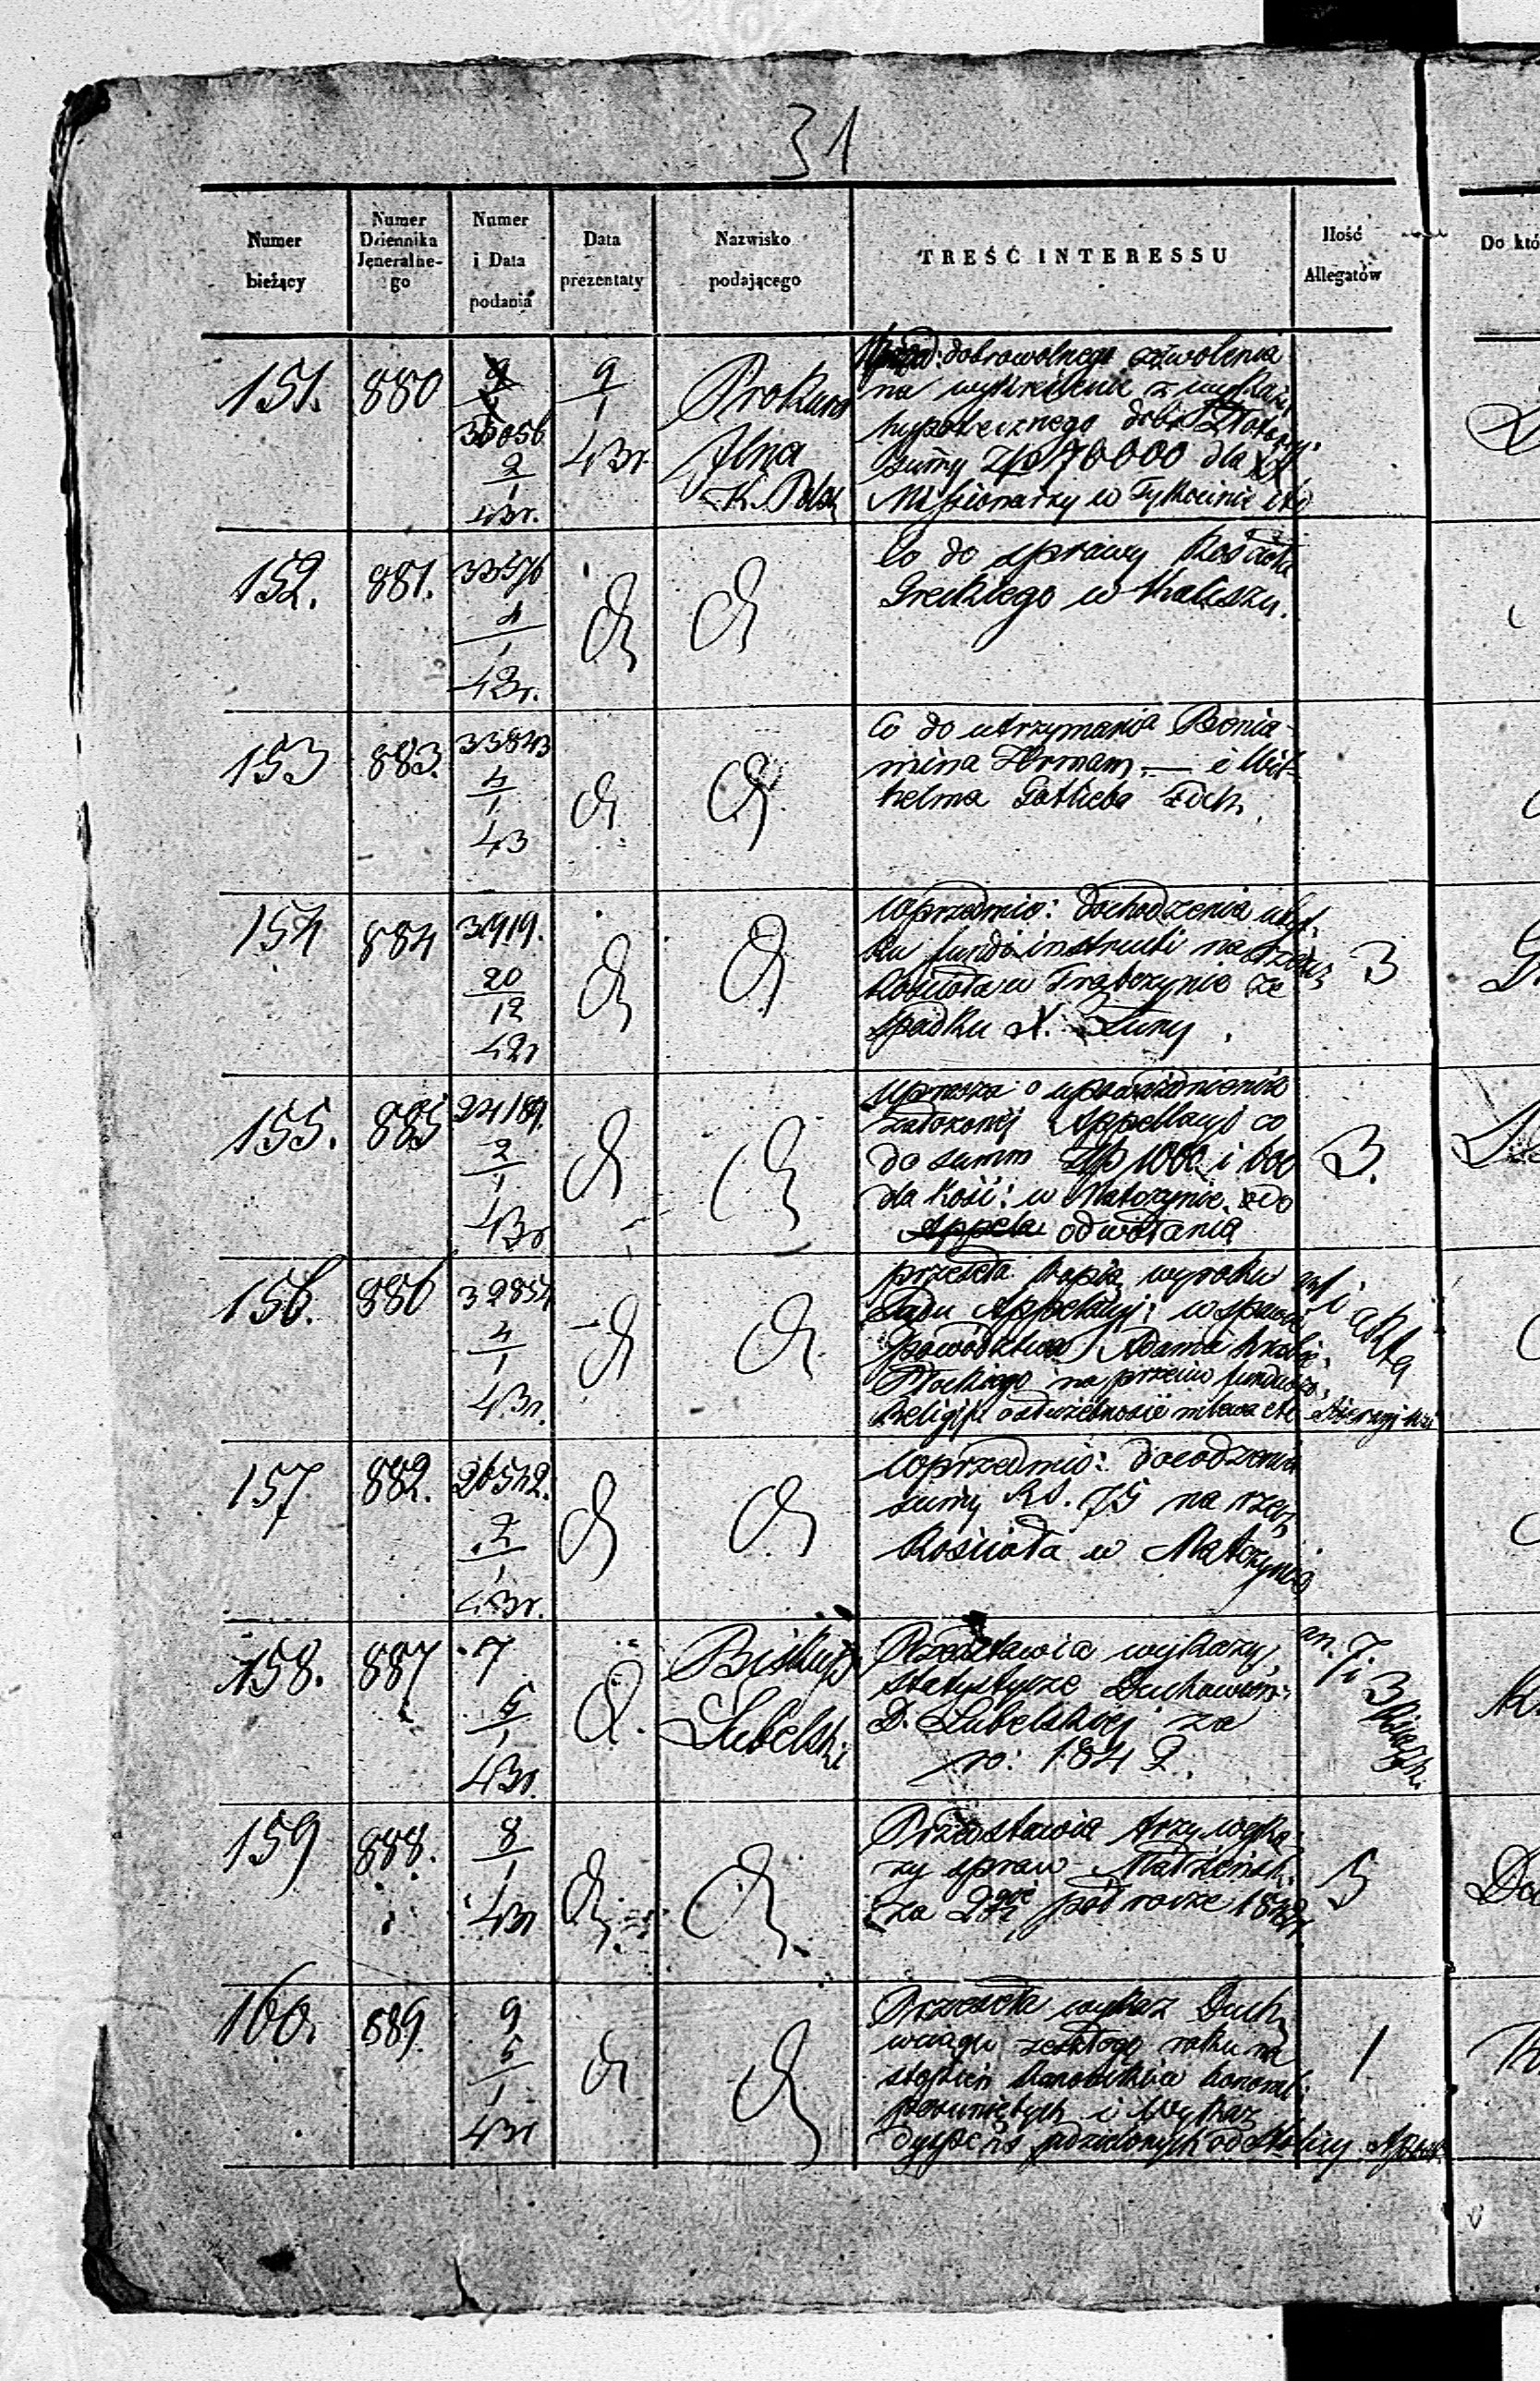 31
Numer bieżący
Numer Dziennika Jeneralnego
Numer i Data podania
Data prezentaty
Nazwisko podającego
TREŚĆ INTERESSU
Ilość Allegatów
Do któ
151. 880 9/1 43r. Prokura
Jlna
K. Pols
dobrowolnego zezwolenia
na wykreślenie z wykazu
hypotecznego dóbr
summy Zło 76000 dla XX
Missionarzy w Tykocinie
2/1 43r.
152. 881. 33576 4/1 43r. dt dt
Co do sprawy Kościoła
Greckiego w Kaliszu.
153 883. 33843 4/1 43 dt dt
Co do utrzymania Benia-
mina Herman, — i Wil-
helma Gotlieba
154 884 3919. 20/12 42r dt dt
W przedmio: dochodzenia
fundi instructi na rzecz
Kościoła w Trąbczynie ze
spadku X.
3
155. 885 24189. 2/1 43r dt dt
uprasza o
założonej Appellacyi co
do summ Złp 1000 i 600
dla Kość: w Matczynie
Appela odwołania
3.
156. 886 32854 4/1 43r. dt dt
przeseła kopią wyroku
Sądu Appelacyj: w sprawie
powództwa Adama hrabie.
na przeciw fundusz.
Religij:
anf i akta
157 882. 26542. 2/1 43r. dt dt
W przedmio: dochodzenia
sumy Rs. 75 na rzecz
Kościoła w Matczynie
158. 887 7 5/1 43r. dt.
Biskup
Lubelski
Przedstawia wykazy,
statystycze Duchowień:
D. Lubelskiej za
ro: 1842.
an. 7 i 3
159 888. 8/1 43r dt dt.
Przedstawia trzy wyka-
zy spraw Małżeńsk.
za 2gie półrocze 1842r
5
Do
160. 889. 9 5/1 43r dt dt
Przeseła wykaz Duch:
w ciągu zeszłego roku na
stopień Kanonika honorol:
posuniętych i Wykaz
dyspens udzielonych od Stolicy Apost.
1